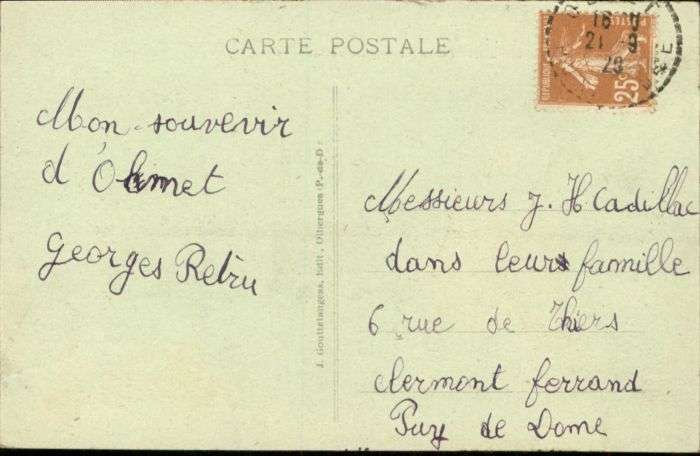 CARTE POSTALE
Mon souvevir
d'Olmet
Georges
J. Gouttefangeas, Edit., Olliergues (P.-de-D
16
21 9
29
REPUBLIQUE
25c
Messieurs J. H Cadillac
dans leurs famille
6 rue de Thiers
clermont ferrand
Puy de Dome